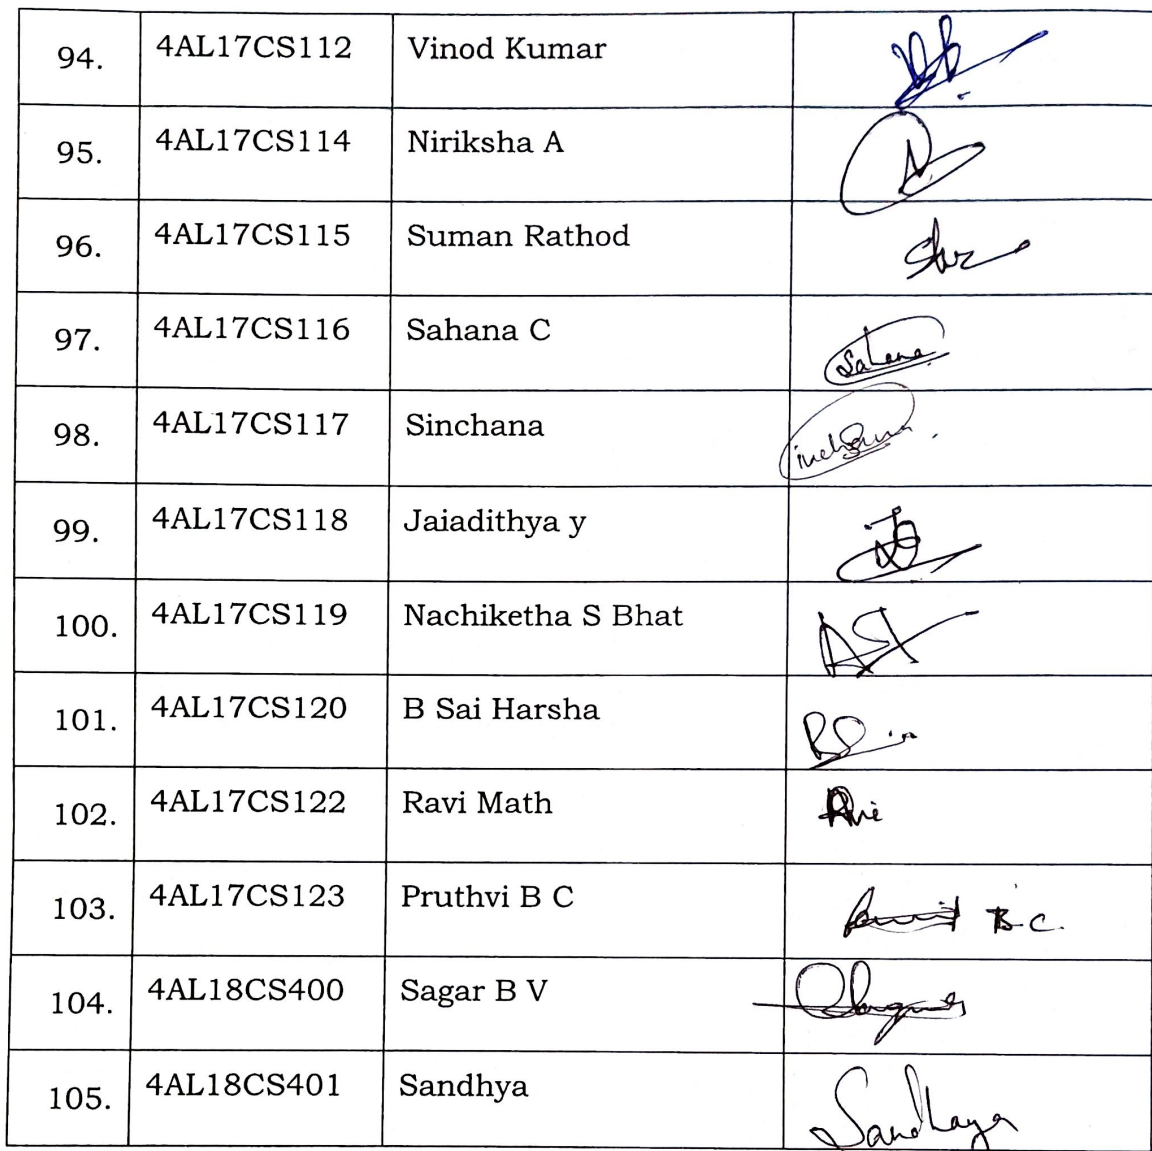 94. 4AL17CS112 Vinod Kumar
95. 4AL17CS114 Niriksha A
96. 4AL17CS115 Suman Rathod
97. 4AL17CS116 Sahana C Sahana
98. 4AL17CS117 Sinchana
99. 4AL17CS118 Jaiadithya y
100. 4AL17CS119 Nachiketha S Bhat
101. 4AL17CS120 B Sai Harsha
102. 4AL17CS122 Ravi Math
103. 4AL17CS123 Pruthvi B C B.C.
104. 4AL18CS400 Sagar B V
105. 4AL18CS401 Sandhya Sandhaya